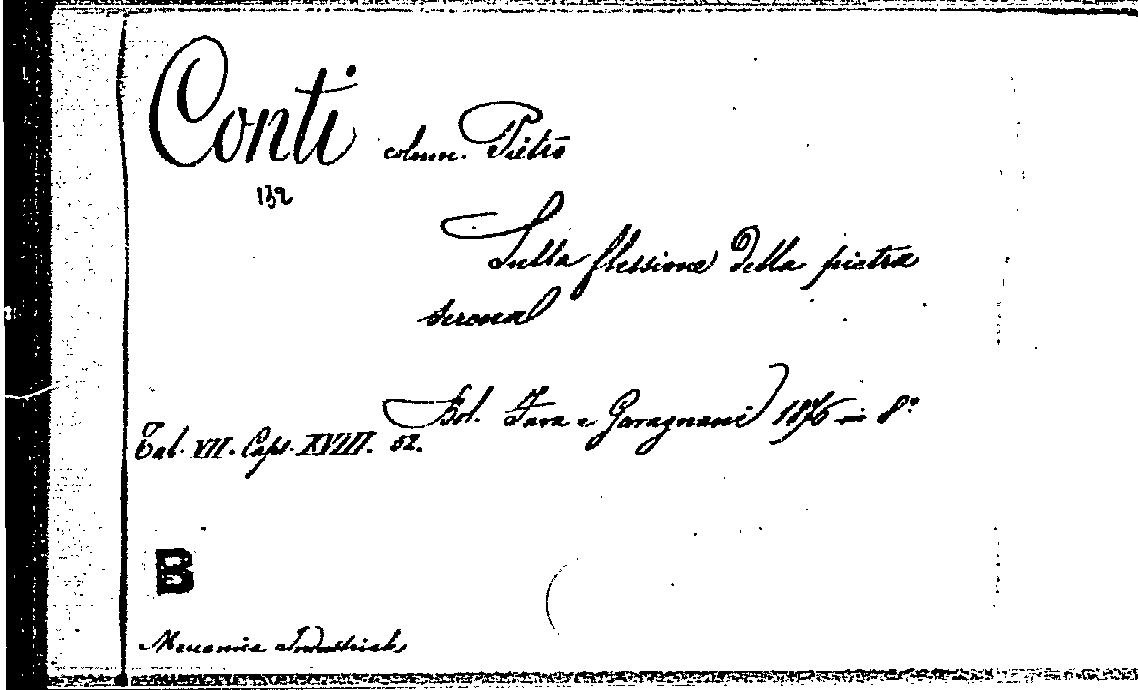 Conti colonn. Pietro
132
Sulla flessione della pietra
serena
Bol. Fava e Garagnani 1876 in 8°
Tab. VII. Caps. XVIII. 52.
B
Meccanica Industriale